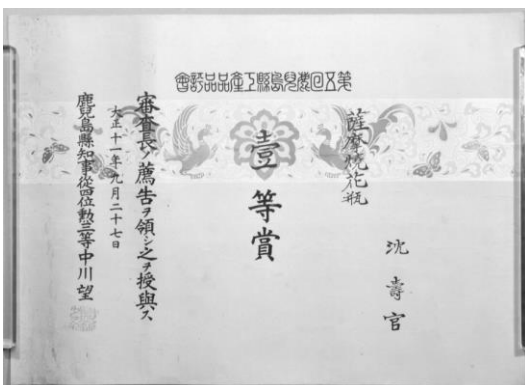 第五回鹿兒島縣工產品品評會
沈壽官
薩摩燒花瓶
壹等賞
審査長ノ薦告ヲ領シ之ヲ授與ス
大正十一年九月二十七日
鹿兒島縣知事從四位勲三等中川望